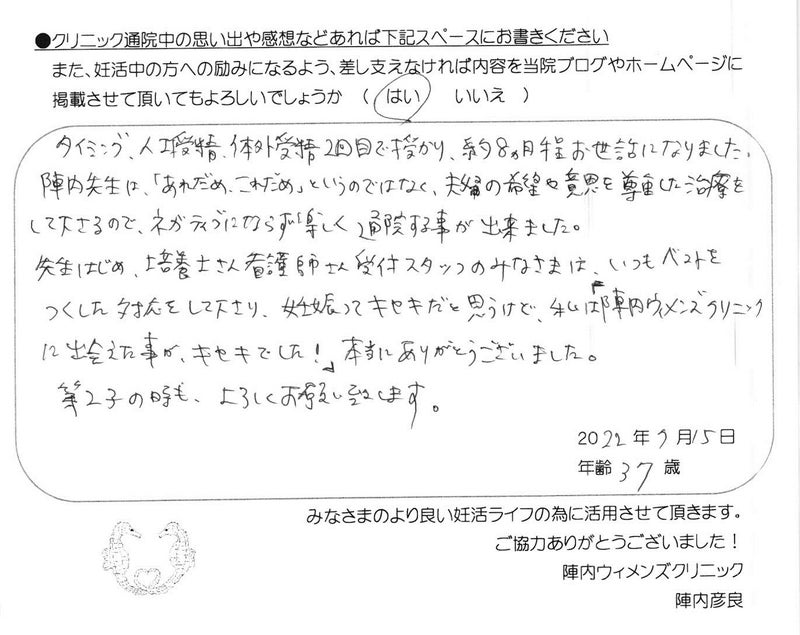 ●クリニック通院中の思い出や感想などあれば下記スペースにお書きください
また、妊活中の方への励みになるよう、差し支えなければ内容を当院ブログやホームページに
掲載させて頂いてもよろしいでしょうか （ はい いいえ ）
タイミング、人工受精、体外受精2回目で授かり、約8ヵ月程お世話になりました。
陣内先生は、「あれだめ、これだめ」というのではなく、夫婦の希望や意思を尊重した治療を
して下さるので、ネガティブにならず楽しく通院する事が出来ました。
先生はじめ、培養士さん看護師さん受付スタッフのみなさまは、いつもベストを
つくした対応をして下さり、妊娠ってキセキだと思うけど、私は「陣内ウィメンズクリニック
に出会えた事が、キセキでした！」本当にありがとうございました。
第2子の時も、よろしくお願い致します。
2022年9月15日
年齢 37 歳
みなさまのより良い妊活ライフの為に活用させて頂きます。
ご協力ありがとうございました！
陣内ウィメンズクリニック
陣内彦良